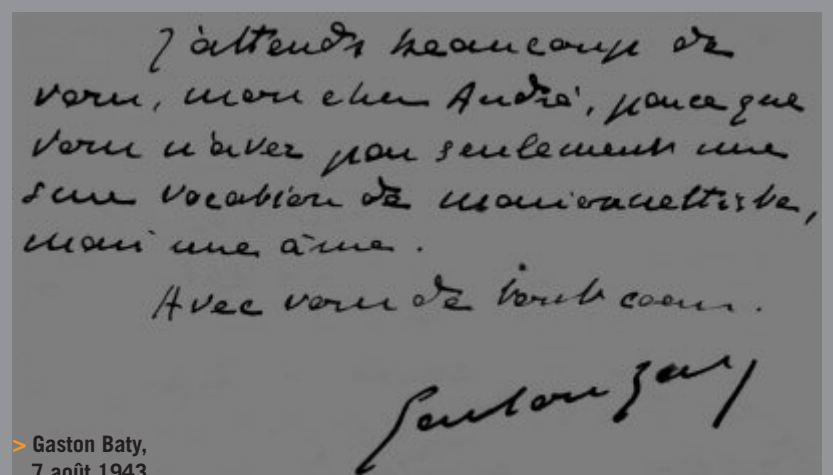 J'attends beaucoup de
vous, mon cher André, parce que
vous n'avez pas seulement une
sûre vocation de marionnettiste,
mais une âme.
Avec vous de tout coeur.
Gaston Baty
> Gaston Baty,
7 août 1943